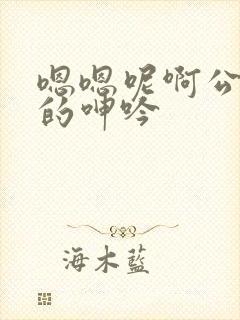 嗯嗯呢啊公
的呻吟
海木蓝